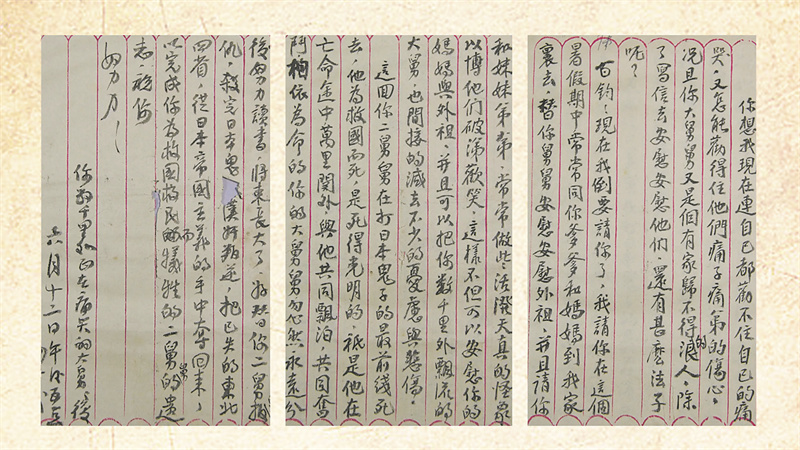 你想我現在連自己都勸不住自己的痛
哭，又怎能勸得住他們痛子痛弟的傷心。
況且你大舅舅又是個有家歸不得的浪人，除
了寫信去安慰安慰他們，還有甚麼法子
呢？
百鈞，現在我倒要請你了，我請你在這個
暑假期中常常同你爹爹和媽媽到我家
裏去，替你舅舅安慰安慰外祖，并且請你
和妹妹弟弟，常常做些活潑天真的怪象
以博他們破涕歡笑，這樣不但可以安慰你的
媽媽與外祖，并且可以把你數千里外飄流的
大舅，也間接的減去不少的憂慮與悲傷。
這回你二舅舅在打日本鬼子的最前綫死
去，他為救國而死，是死得光明的，祇是他在
亡命途中萬里關外，與他共同飄泊，共同奮
鬥相依為命的你的大舅舅 然永遠分
後努力讀書，將來長大了，好 你二舅舅報
仇，殺完日本鬼 漢奸叛逆，把已失的東北
四省，從日本帝國主義的手中奪回來，
以完成你為救國救民而犧牲的二舅舅的遺
志，祝你
努力！
你的千里外正在痛哭的大舅
六月十二日午